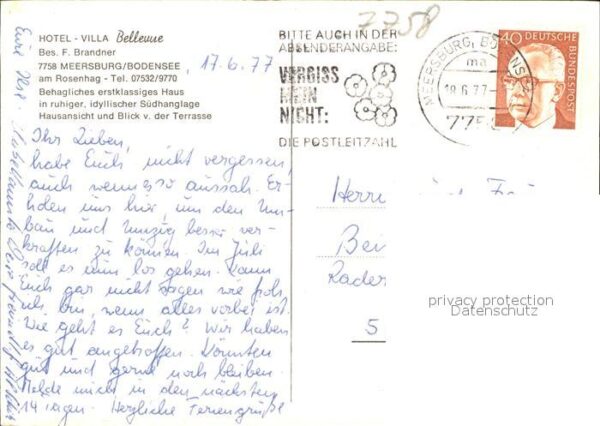 7758
HOTEL - VILLA Bellevue
Bes. F. Brandner
7758 MEERSBURG/BODENSEE
am Rosenhag - Tel. 07532/9770
Behagliches erstklassiges Haus
in ruhiger, idyllischer Südhanglage
Hausansicht und Blick v. der Terrasse
17.6.77
BITTE AUCH IN DER
ABSENDERANGABE:
VERGISS
MEIN
NICHT:
DIE POSTLEITZAHL
MEERSBURG, BODENSEE
ma
18.6.77
7758
40 DEUTSCHE
BUNDESPOST
Ihr Lieben,
habe Euch nicht vergessen,
auch wenn es so aussah. Er-
holen uns hier, um den Um-
bau und Umzug besser ver-
kraften zu können. Im Juli
soll es nun los gehen. Kann
Euch gar nicht sagen wie froh
ich bin, wenn alles vorbei ist.
Wie geht es Euch? Wir haben
es gut angetroffen. Könnten
gut und gerne noch bleiben.
Melde mich in den nächsten
14 Tagen. Herzliche Feriengrüße
Eure
Herrn und
Bei
Rader
5
privacy protection
Datenschutz